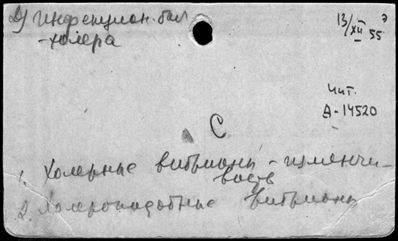 2) инфекцион. бол
- холера
13/XII 55 э
Чит.
А-14520
С
1. Холерные вибрионы - изменчи-
вость
2. Холероподобные вибрионы